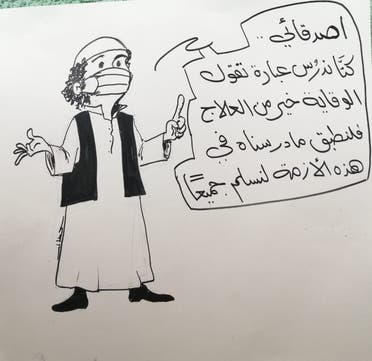 أصدقائي ..
كنَّا ندرُس عبارة تقول
الوقاية خير من العلاج
فلنطبق ما درسناه في
هذه الأزمة لنسلم جميعاً